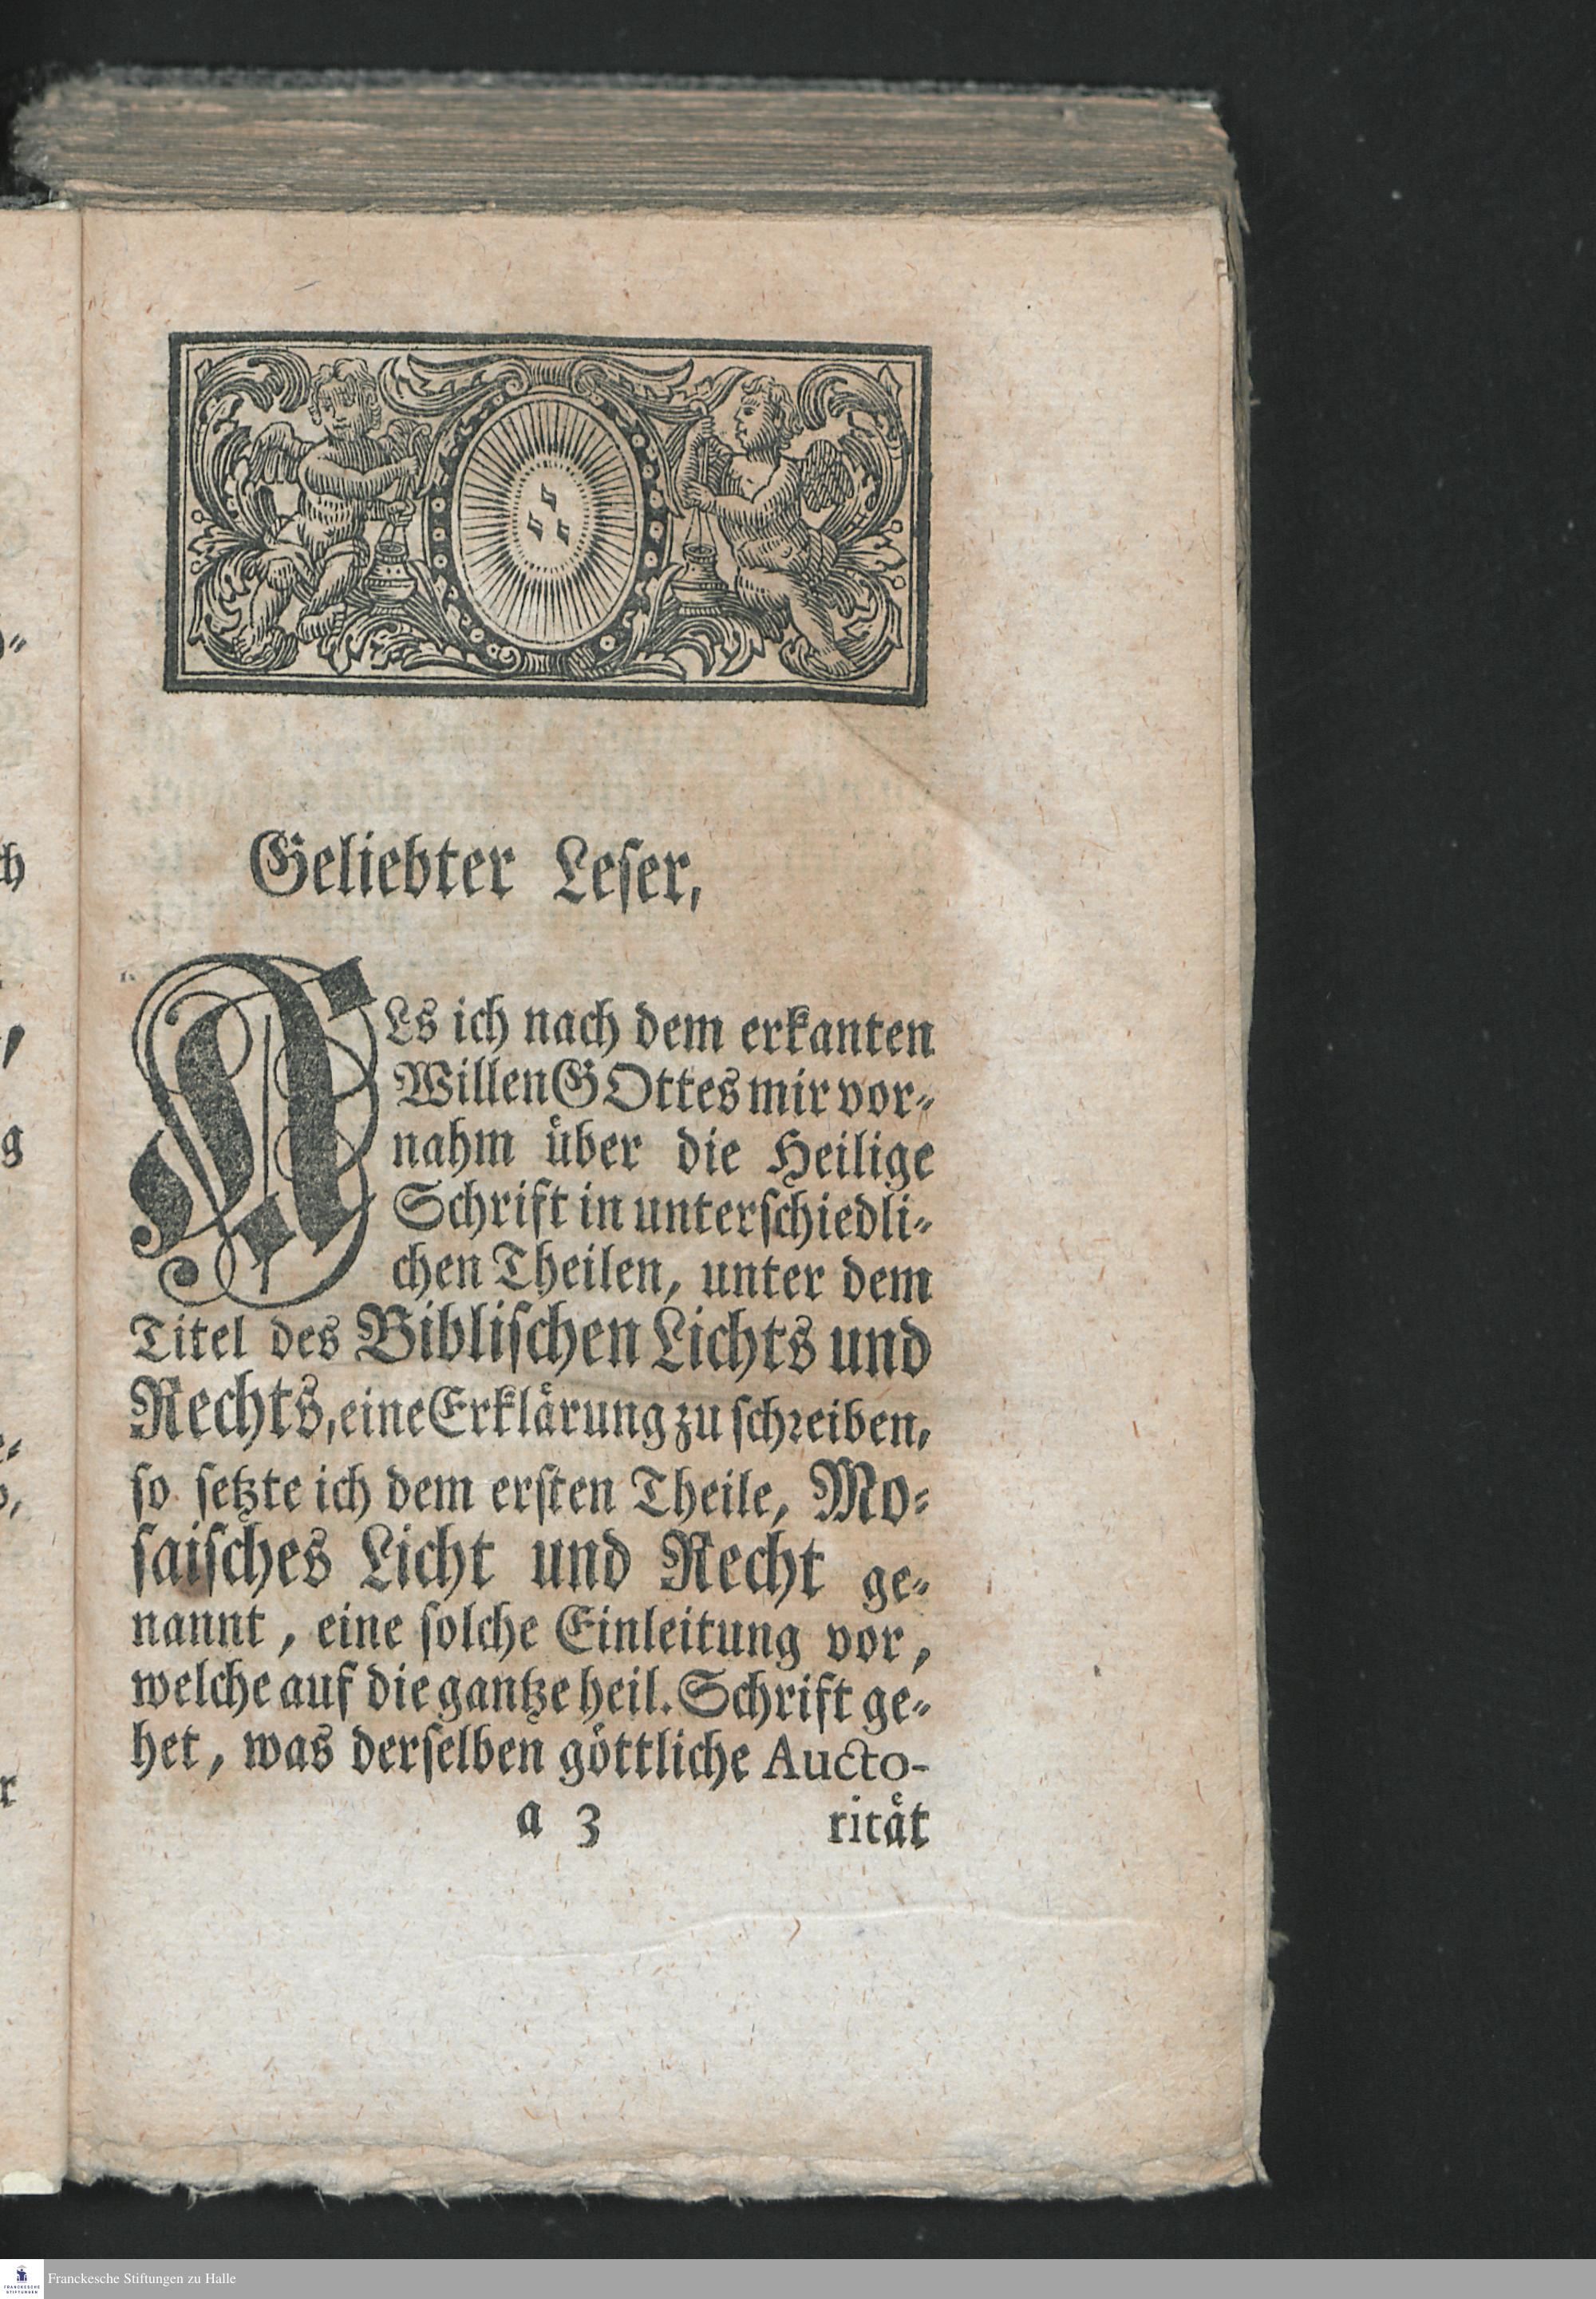 Geliebter Leser,
ALs ich nach dem erkanten
Willen GOttes mir vor-
nahm über die Heilige
Schrift in unterschiedli-
chen Theilen, unter dem
Titel des Biblischen Lichts und
Rechts, eine Erklärung zu schreiben,
so setzte ich dem ersten Theile, Mo-
saisches Licht und Recht ge-
nannt, eine solche Einleitung vor,
welche auf die gantze heil. Schrift ge-
het, was derselben göttliche Aucto-
a 3 rität
Franckesche Stiftungen zu Halle